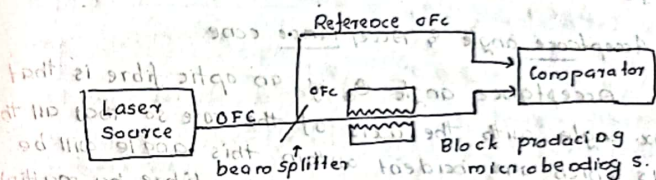 Reference OFC
Comparator
OFC
Laser
Source
OFC
beam splitter
Block producing
microbendings.